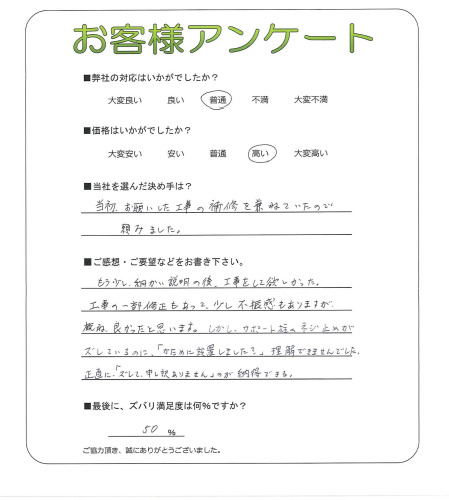 お客様アンケート
■弊社の対応はいかがでしたか?
大変良い 良い 普通 不満 大変不満
■価格はいかがでしたか?
大変安い 安い 普通 高い 大変高い
■当社を選んだ決め手は?
当初、お願いした工事の補修を兼ねていたので
頼みました。
■ご感想・ご要望などをお書き下さい。
もう少し、細かい説明の後、工事をして欲しかった。
工事の一部修正もあって、少し不信感もありますが、
概ね、良かったと思います。しかし、サポート の ネジ止めが
ズレているのに、「 ために設置しました?」理解できませんでした。
正直に、「ズレて、申し訳ありません」のが納得できる。
■最後に、ズバリ満足度は何%ですか?
50 %
ご協力頂き、誠にありがとうございました。